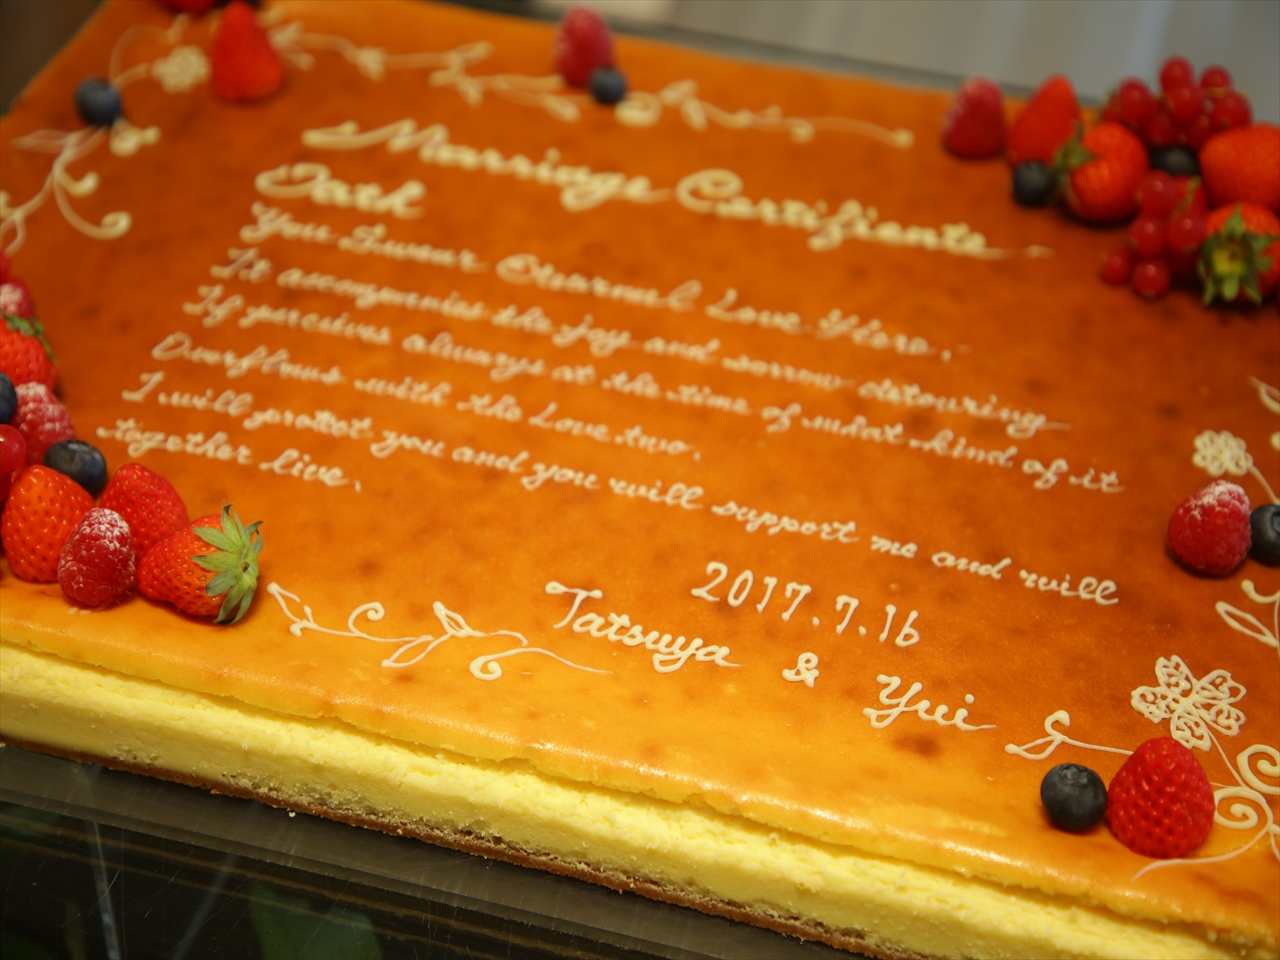 Marriage Certificate
Oath
You Swear Eternal Love Here.
It accompanies the joy and sorrow detouring
If perceives always at the time of what kind of it
Overflows with the Love two.
I will protect you and you will support me and will
together live.
2017.7.16
Tatsuya & Yui